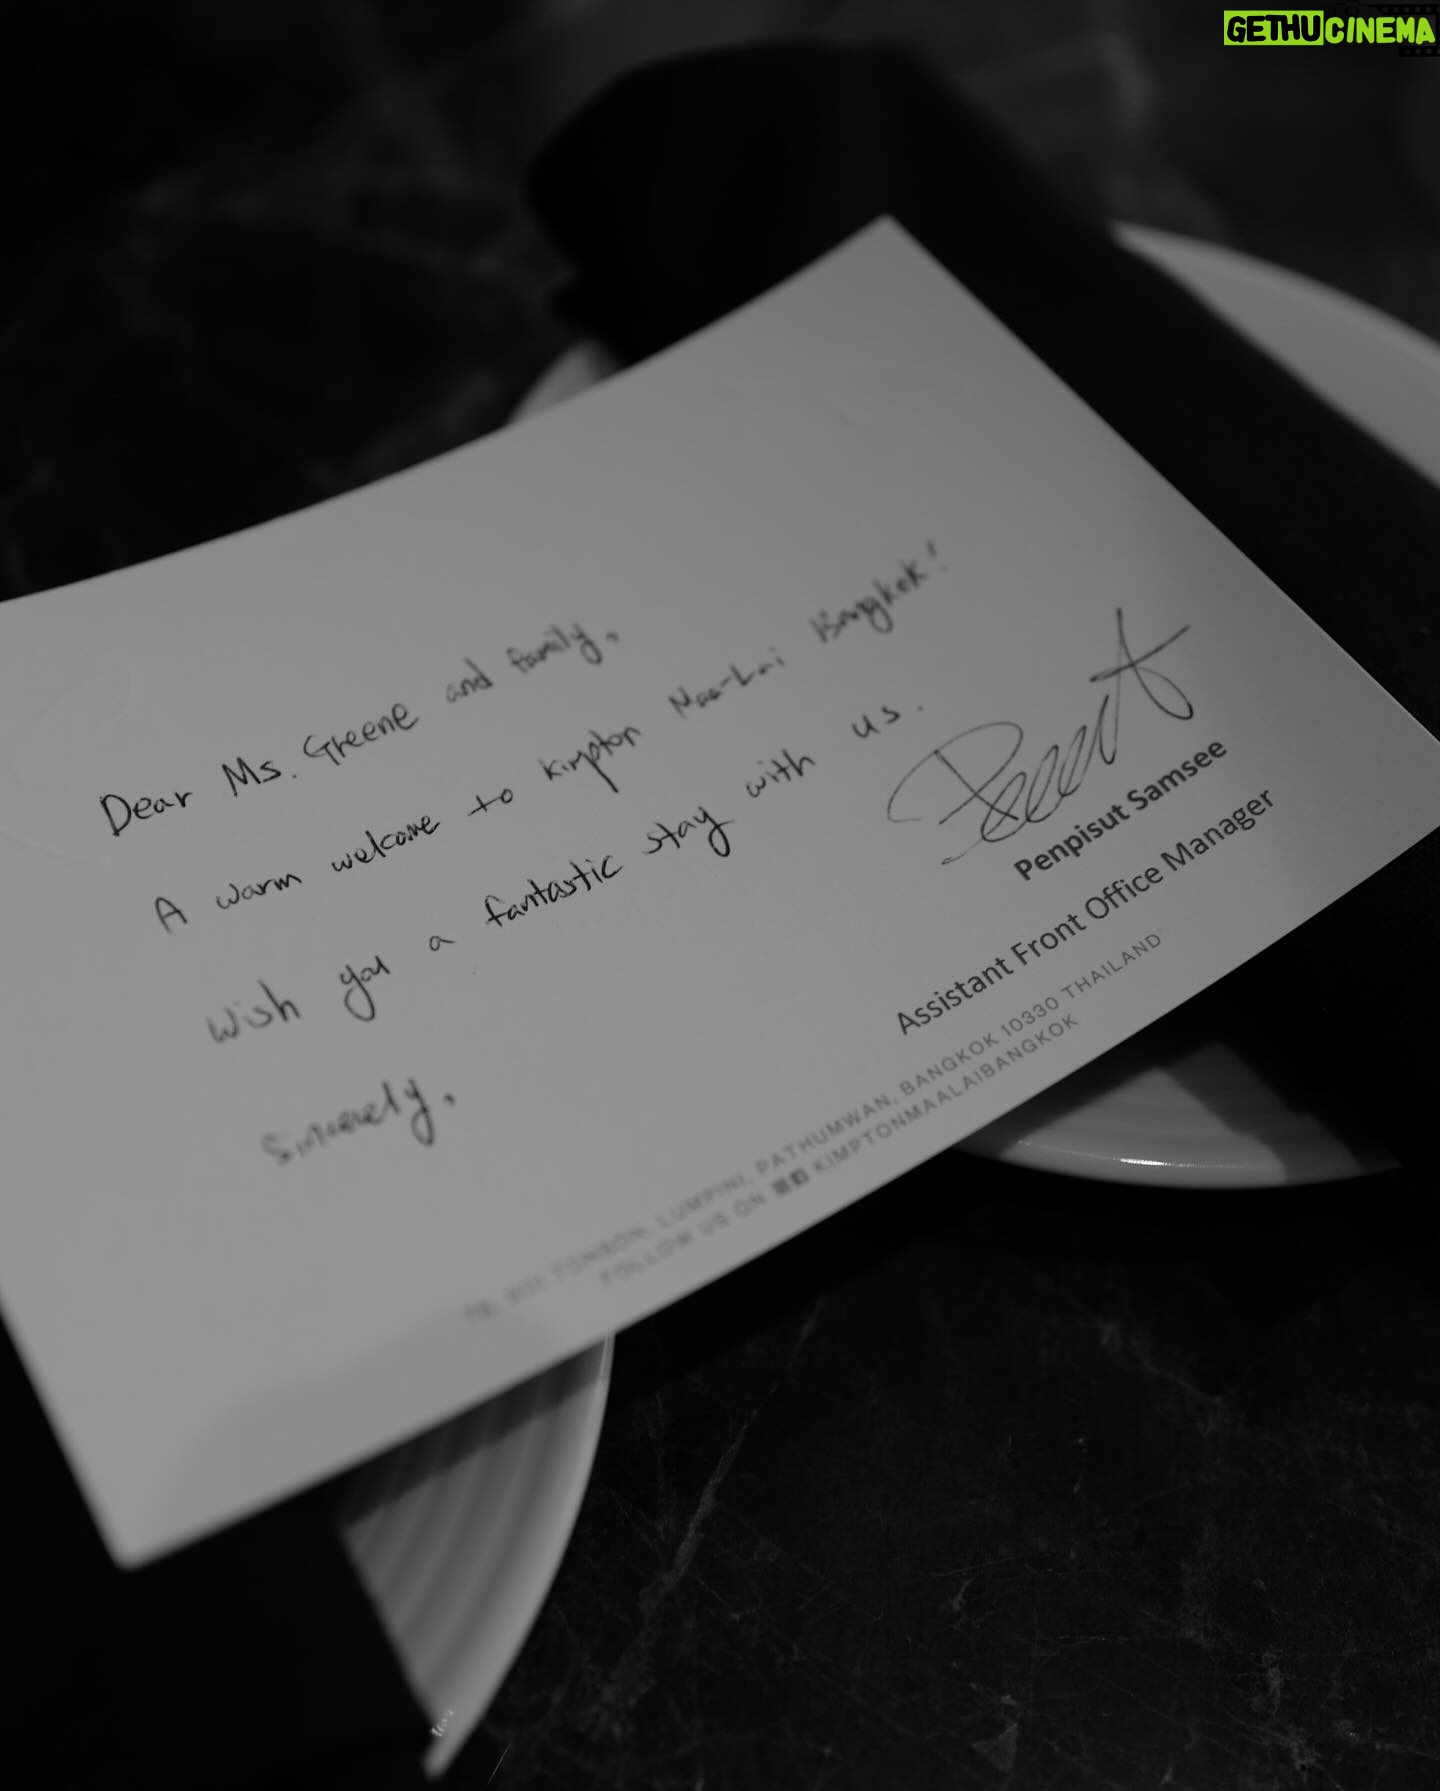 GETHUCINEMA
Dear Ms. Greene and family,
A warm welcome to Kimpton Maa-Lai Bangkok!
Wish you a fantastic stay with us.
Sincerely,
Penpisut Samsee
Assistant Front Office Manager
TONSON, LUMPINI, PATHUMWAN, BANGKOK 10330 THAILAND
FOLLOW US ON KIMPTONMAALAIBANGKOK